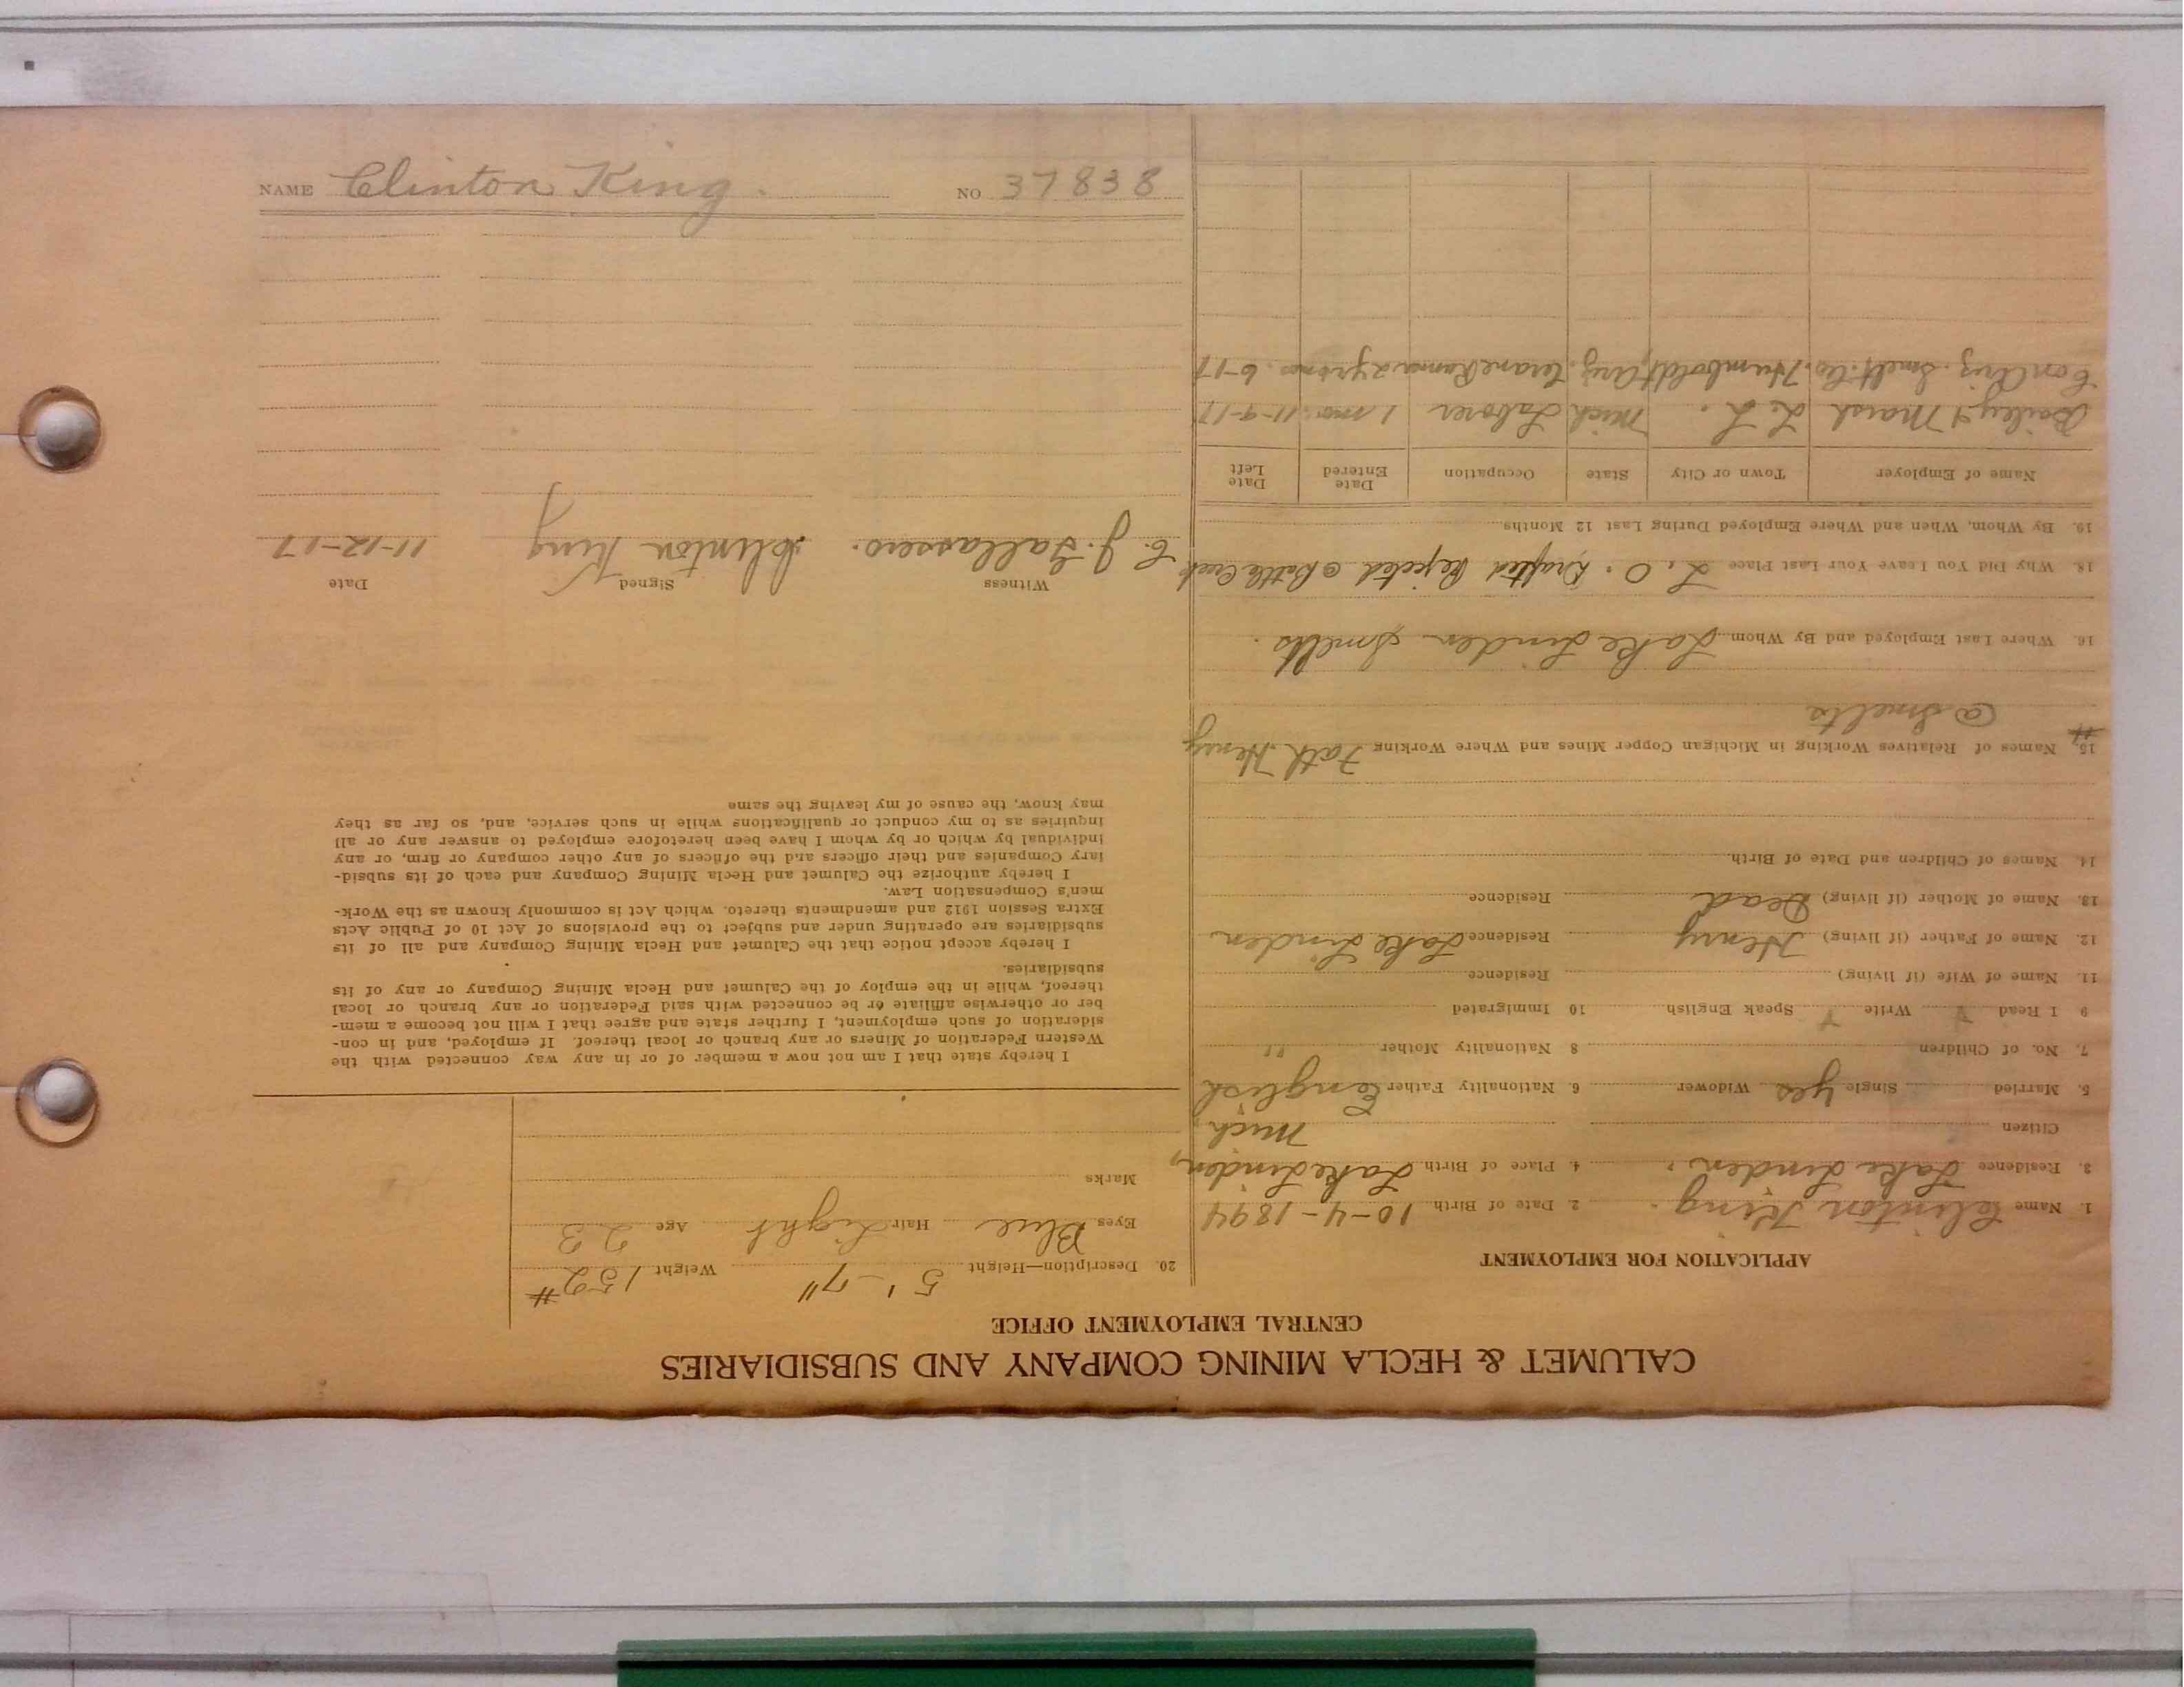 CALUMET & HECLA MINING COMPANY AND SUBSIDIARIES
CENTRAL EMPLOYMENT OFFICE
APPLICATION FOR EMPLOYMENT
1. Name Clinton King. 2. Date of Birth 10-4-1894
3. Residence Lake Linden. 4. Place of Birth Lake Linden,
Citizen Mich.
5. Married Single Yes Widower 6. Nationality Father English
7. No. of Children 8 Nationality Mother "
9 I Read Y Write Y Speak English 10 Immigrated
11. Name of Wife (if living) Residence
12. Name of Father (if living) Henry Residence Lake Linden
13. Name of Mother (if living) Dead Residence
14. Names of Children and Date of Birth
15. Names of Relatives Working in Michigan Copper Mines and Where Working Fath. Henry
@ Smelts
16. Where Last Employed and By Whom Lake Linden Smelts.
18. Why Did You Leave Your Last Place L. O. Drafted Rejected @ Battle Creek
19. By Whom, When and Where Employed During Last 12 Months
Name of Employer Town or City State Occupation Date Entered Date Left
Bailey & Marsh L. L. Mich Laborer 1 mo. 11-9-17
Con Ariz. Smelt. Co. Humboldt, Ariz. 6-17
20. Description—Height 5'-7" Weight 152#
Eyes Blue Hair Light Age 23
Marks
I hereby state that I am not now a member of or in any way connected with the
Western Federation of Miners or any branch or local thereof. If employed, and in con-
sideration of such employment, I further state and agree that I will not become a mem-
ber or otherwise affiliate or be connected with said Federation or any branch or local
thereof, while in the employ of the Calumet and Hecla Mining Company or any of its
subsidiaries.
I hereby accept notice that the Calumet and Hecla Mining Company and all of its
subsidiaries are operating under and subject to the provisions of Act 10 of Public Acts
Extra Session 1912 and amendments thereto, which Act is commonly known as the Work-
men's Compensation Law.
I hereby authorize the Calumet and Hecla Mining Company and each of its subsid-
iary Companies and their officers and the officers of any other company or firm, or any
individual by which or by whom I have been heretofore employed to answer any or all
inquiries as to my conduct or qualifications while in such service, and, so far as they
may know, the cause of my leaving the same
Witness Signed Date
C. J. Clinton King 11-12-17
NAME Clinton King. NO 37838